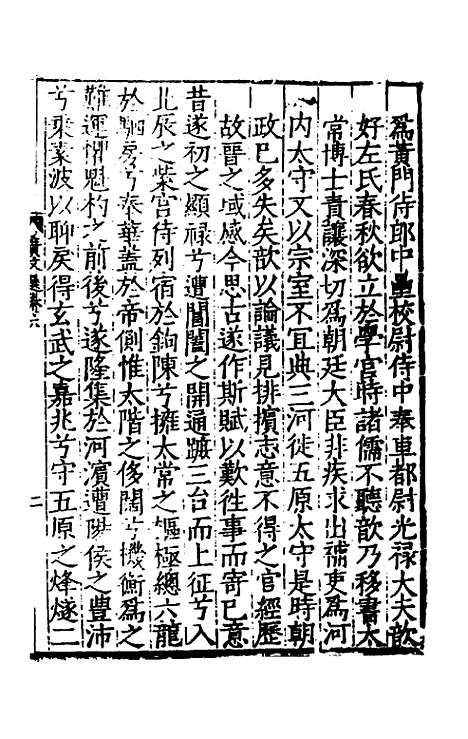 為黃門侍郎中壘校尉侍中奉車都尉光祿大夫歆
好左氏春秋欲立於學官時諸儒不聽歆乃移書太
常博士責讓深切為朝廷大臣非疾求出補吏為河
內太守又以宗室不宜典三河徙五原太守是時朝
政巳多失矣歆以論議見排擯志意不得之官經歷
故晉之域感今思古遂作斯賦以歎徃事而寄巳意
昔遂初之顯祿兮遭閶闔之開通蹠三台而上征兮入
北辰之紫宮侍列宿於鉤陳兮擁太常之樞極總六龍
於駟房兮奉華葢於帝側惟太階之侈闊兮機衡為之
難運懼魁杓之前後兮遂隆集於河濱遭陽侯之豐沛
兮乘素波以聊戾得玄武之嘉兆兮守五原之烽燧二
廣文選卷六
二